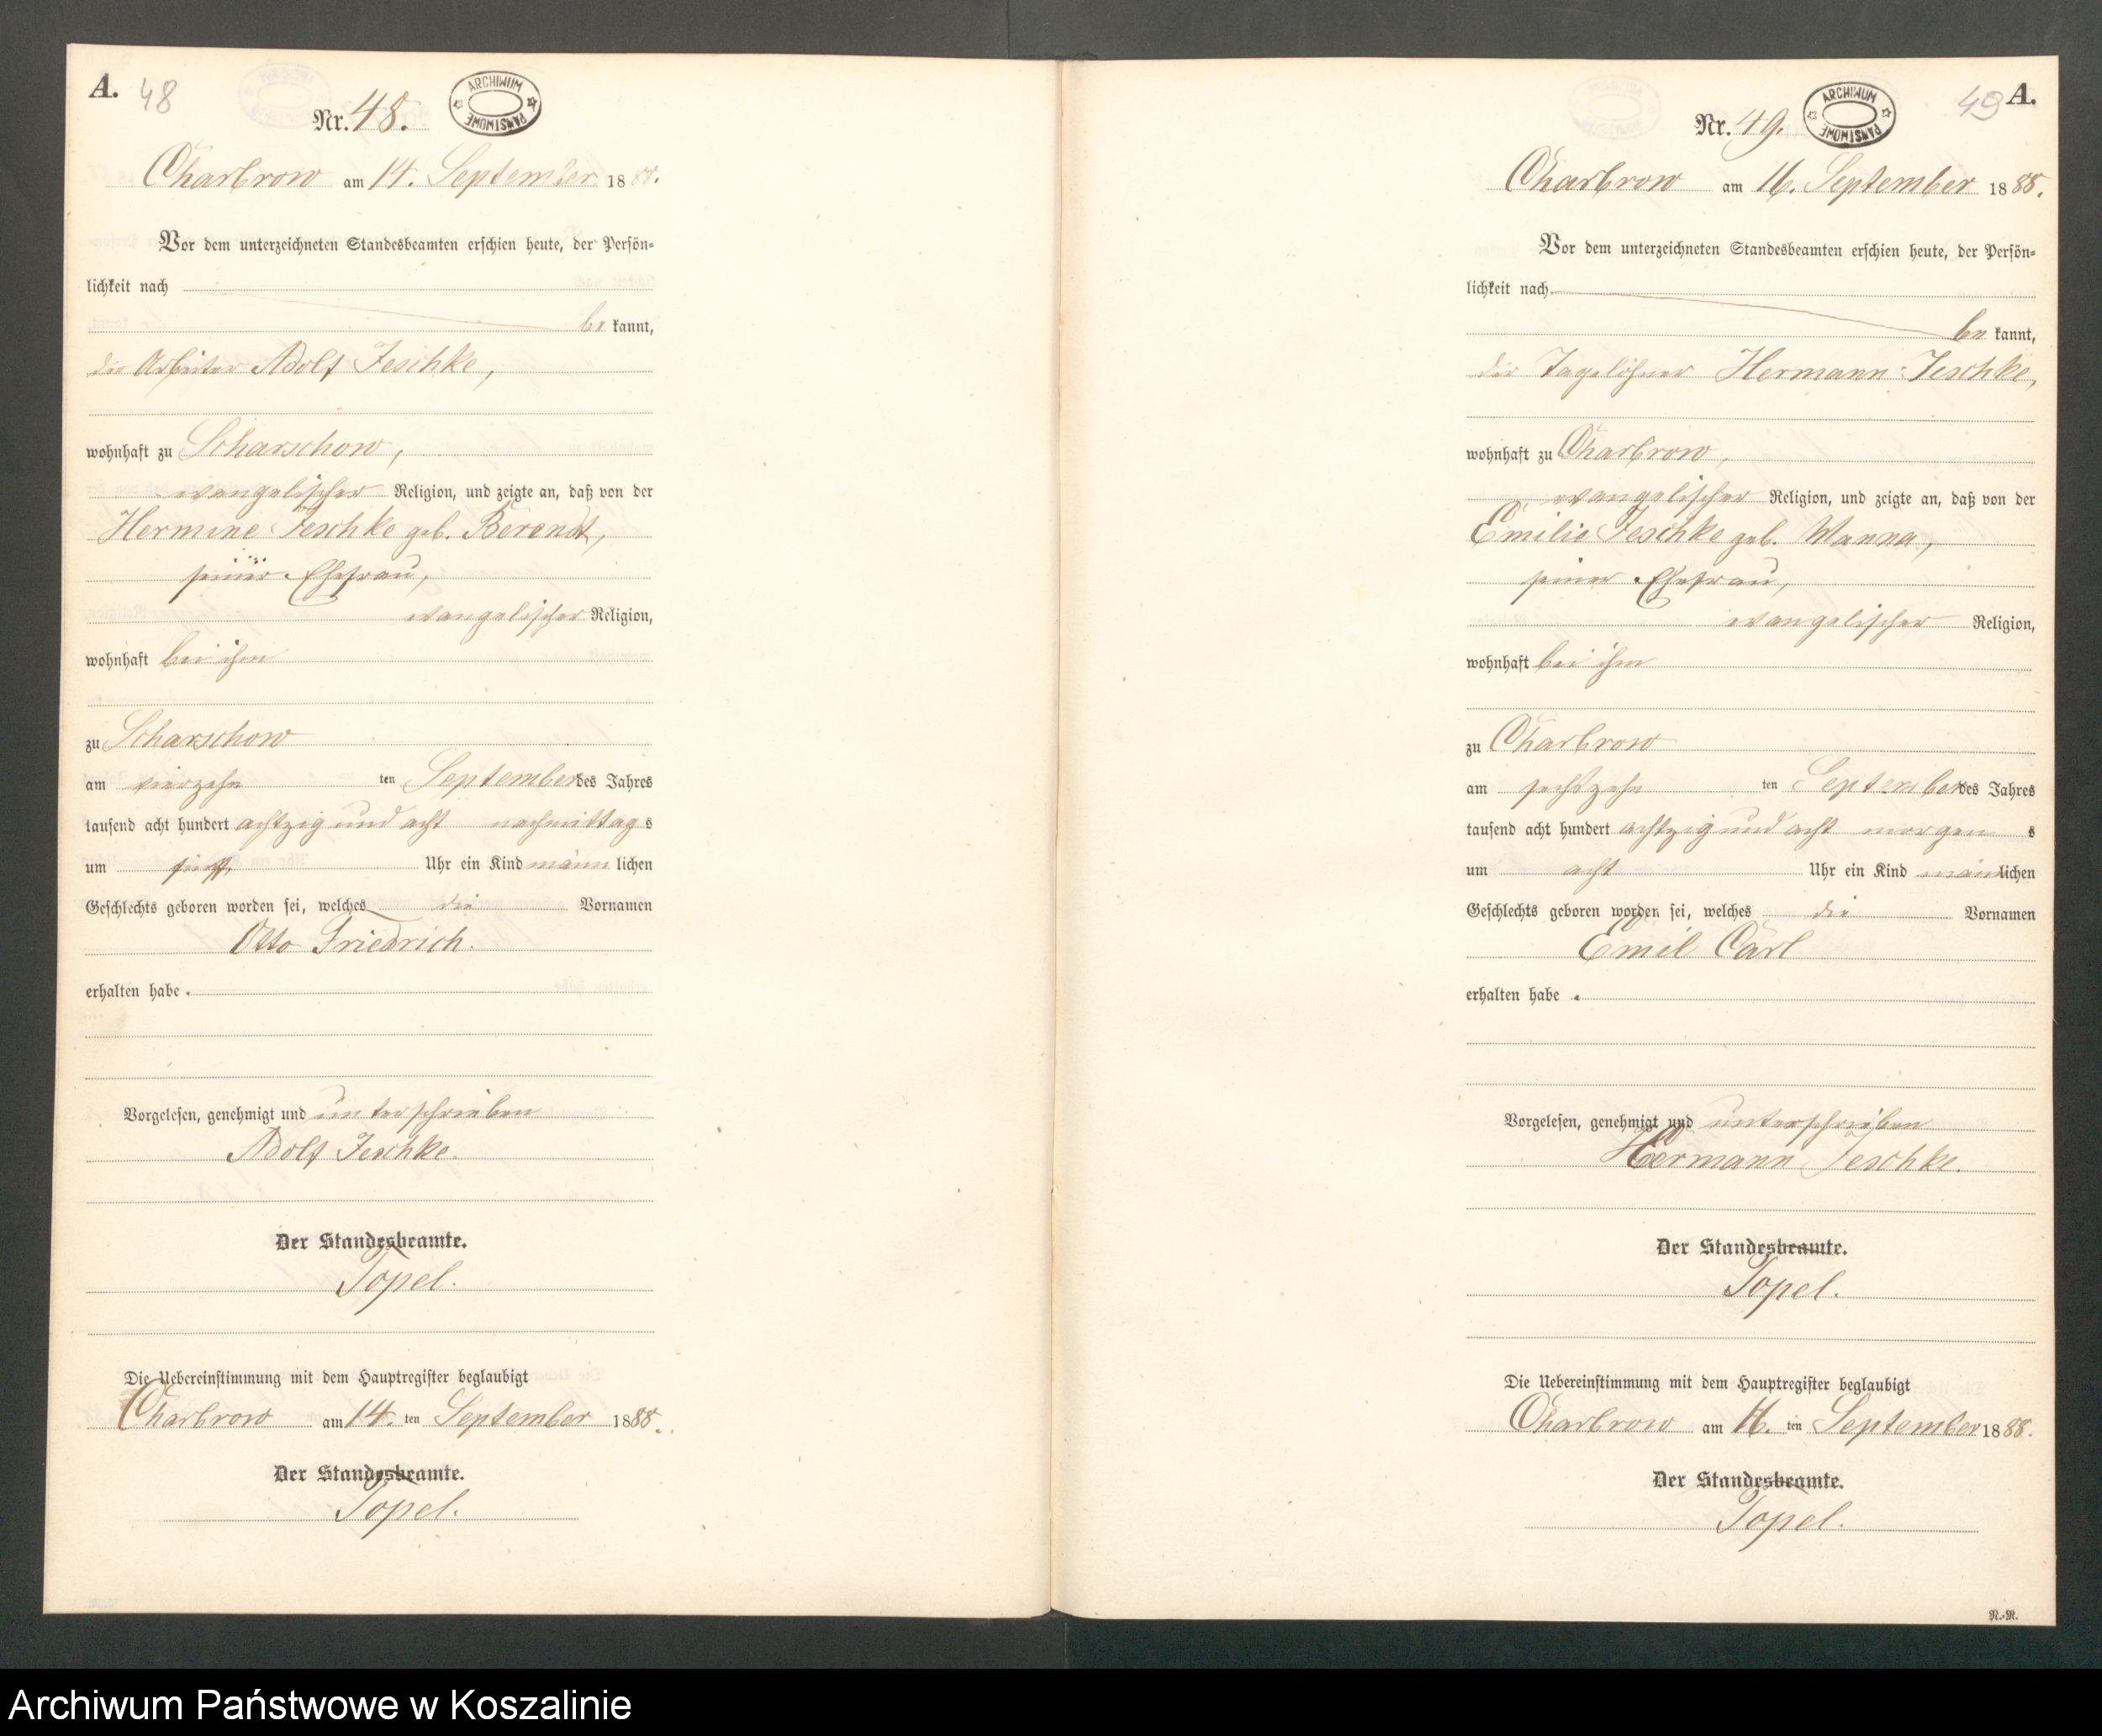 A. 48
Nr. 48.
ARCHIWUM PAŃSTWOWE
Charbrow am 14. September 1888.
Vor dem unterzeichneten Standesbeamten erschien heute, der Persön-
lichkeit nach
be kannt,
der Arbeiter Adolf Jeschke,
wohnhaft zu Scharschow,
evangelischer Religion, und zeigte an, daß von der
Hermine Jeschke geb. Berendt,
seiner Ehefrau,
evangelischer Religion,
wohnhaft bei ihm
zu Scharschow
am vierzehn ten September des Jahres
tausend acht hundert achtzig und acht nachmittag s
um fünf Uhr ein Kind männ lichen
Geschlechts geboren worden sei, welches die Vornamen
Otto Friedrich.
erhalten habe .
Vorgelesen, genehmigt und unterschrieben
Adolf Jeschke.
Der Standesbeamte.
Topel.
Die Uebereinstimmung mit dem Hauptregister beglaubigt
Charbrow am 14. ten September 1888.
Der Standesbeamte.
Topel.
49 A.
Nr. 49.
ARCHIWUM PAŃSTWOWE
Charbrow am 16. September 1888.
Vor dem unterzeichneten Standesbeamten erschien heute, der Persön-
lichkeit nach
be kannt,
der Tagelöhner Hermann Jeschke,
wohnhaft zu Charbrow,
evangelischer Religion, und zeigte an, daß von der
Emilie Jeschke geb. Wanna,
seiner Ehefrau,
evangelischer Religion,
wohnhaft bei ihm
zu Charbrow
am sechszehn ten September des Jahres
tausend acht hundert achtzig und acht morgen s
um acht Uhr ein Kind männlichen
Geschlechts geboren worden sei, welches die Vornamen
Emil Carl
erhalten habe .
Vorgelesen, genehmigt und unterschrieben
Hermann Jeschke.
Der Standesbeamte.
Topel.
Die Uebereinstimmung mit dem Hauptregister beglaubigt
Charbrow am 16. ten September 1888.
Der Standesbeamte.
Topel.
N.-R.
Archiwum Państwowe w Koszalinie